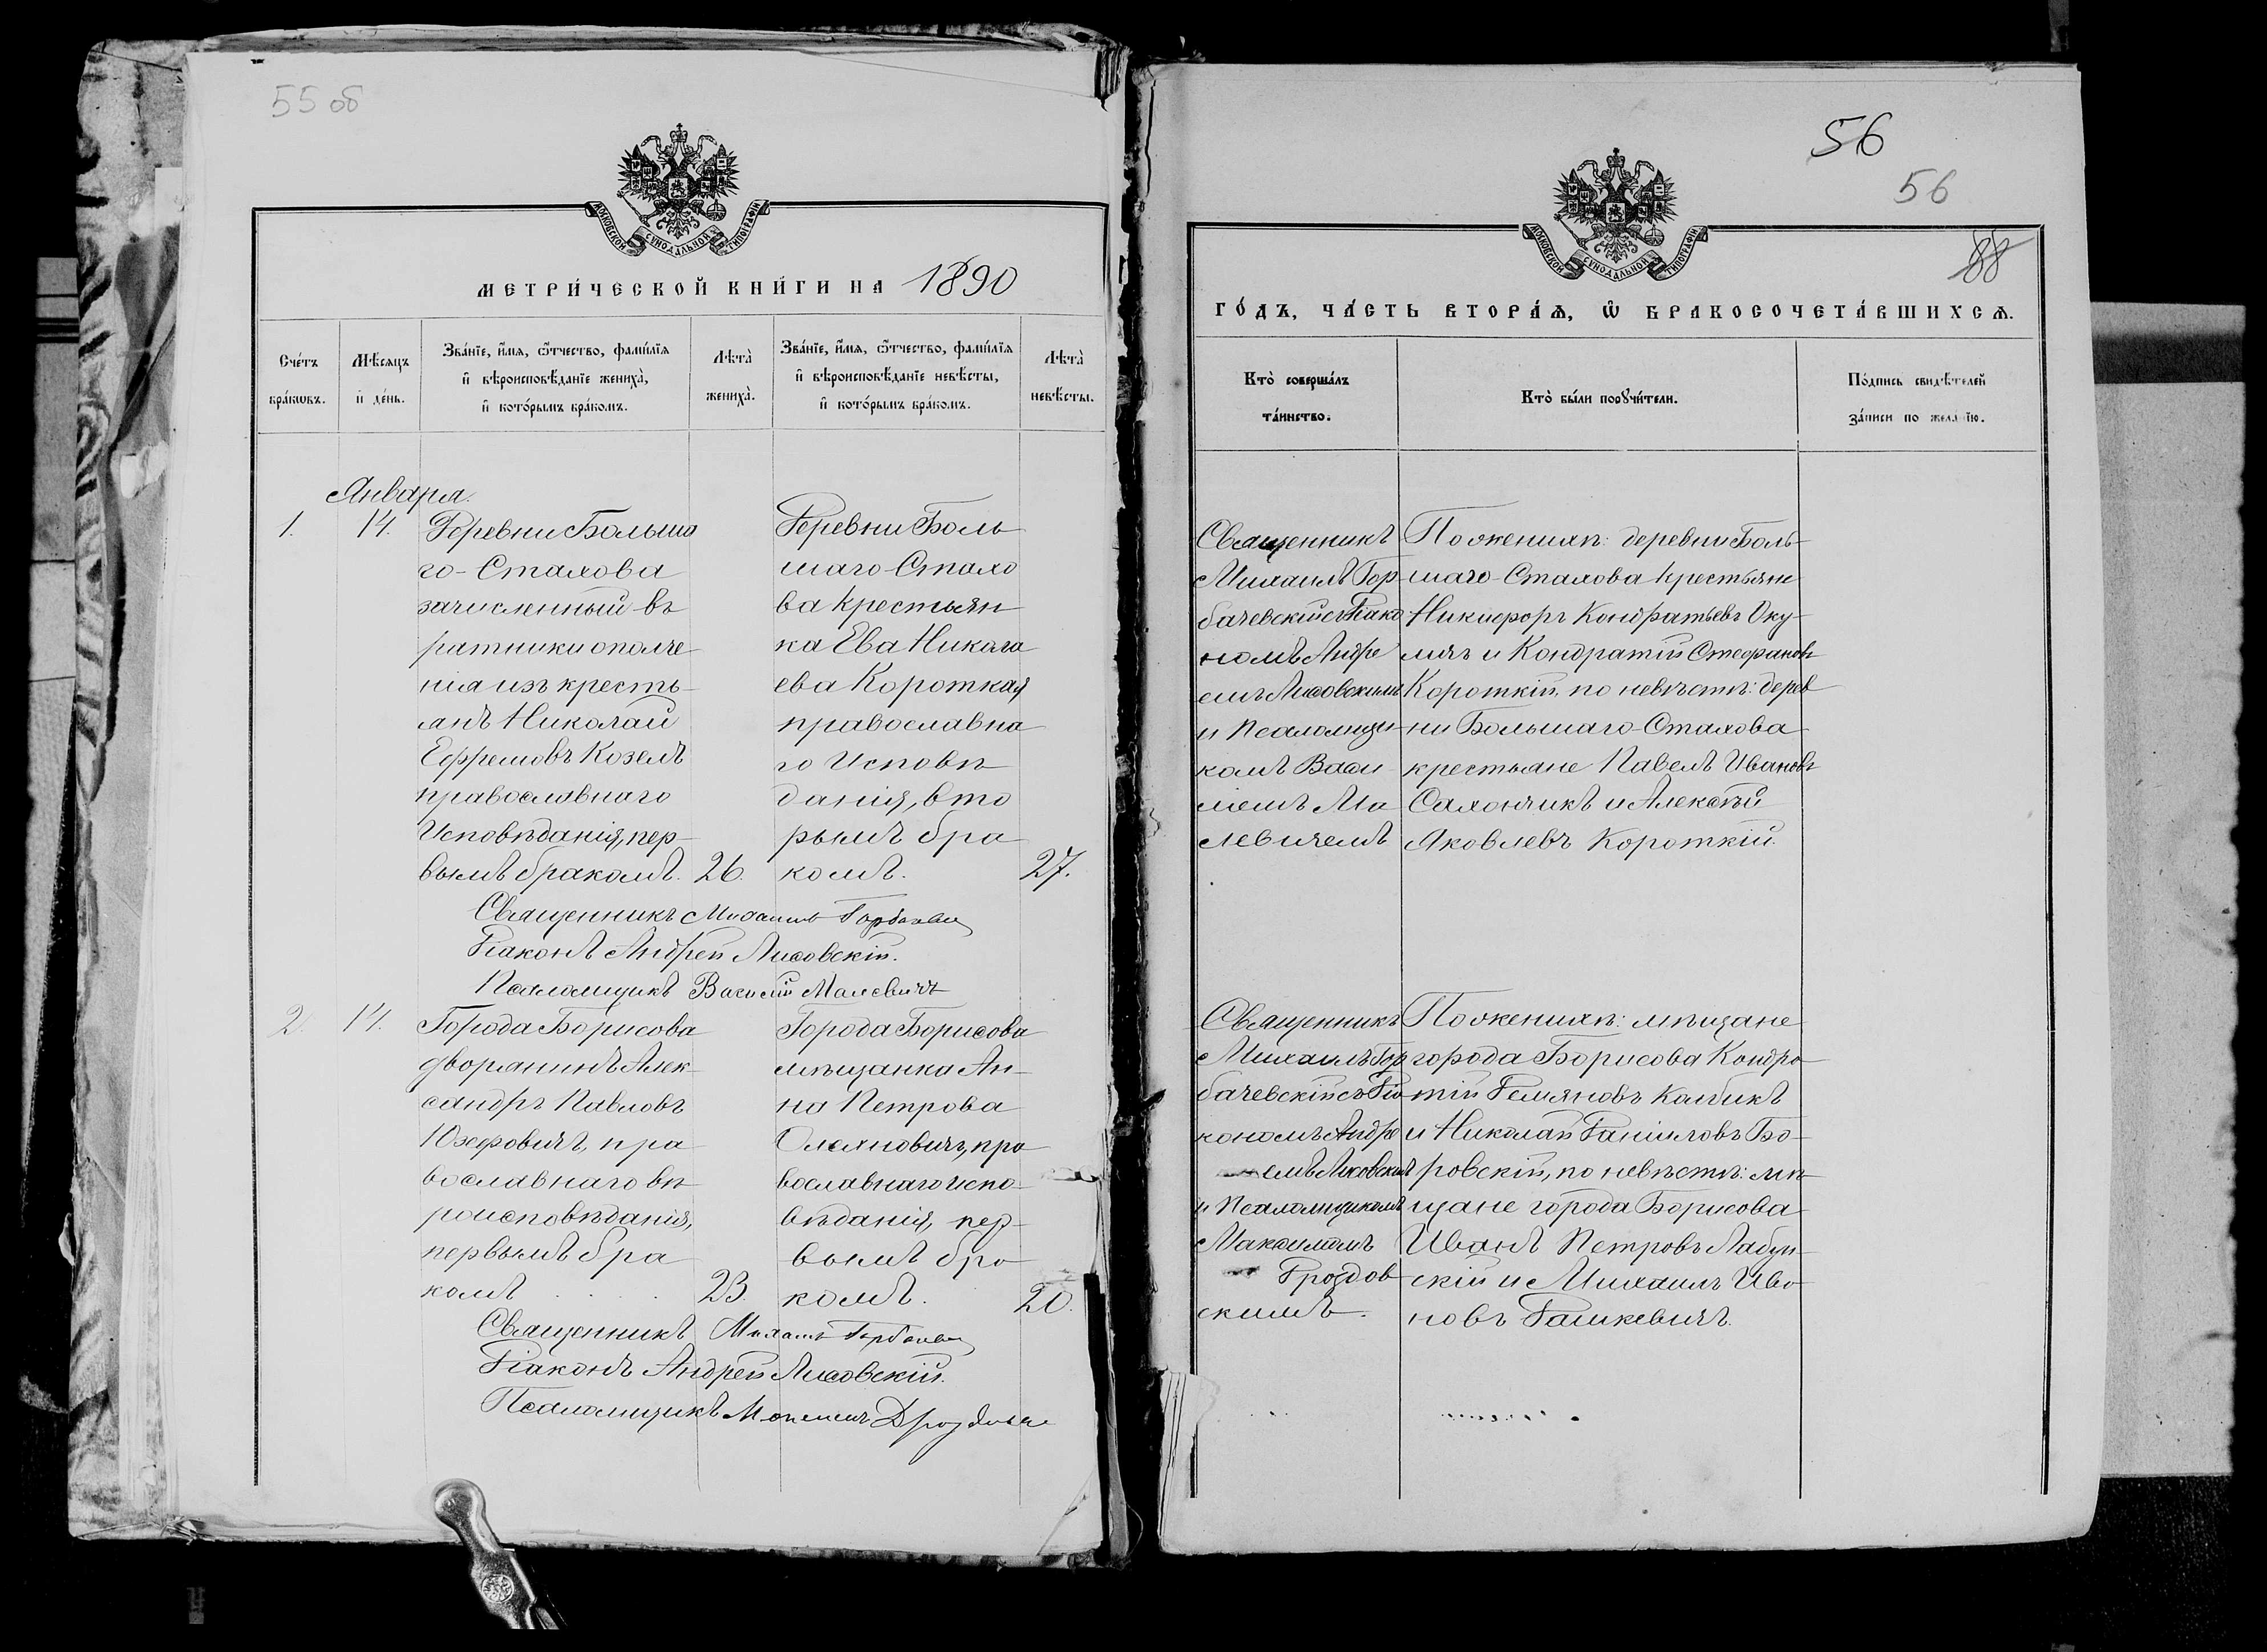 55 об
МОСКОВСКОЙ СУНОДАЛЬНОЙ ТИПОГРАФІИ
МЕТРИ́ЧЕСКОЙ КНИ́ГИ НА 1890
Сче́тъ бра́кѡвъ.
Мѣсяцъ и҆ де́нь.
Зва́нїе, и҆́мѧ, ѻ҆́тчество, фами́лїѧ и҆ вѣроисповѣ́данїе жениха̀, и҆ кото́рымъ бра́комъ.
Лѣта̀ жениха̀.
Зва́нїе, и҆́мѧ, ѻ҆́тчество, фами́лїѧ и҆ вѣроисповѣ́данїе невѣ́сты, и҆ кото́рымъ бра́комъ.
Лѣта̀ невѣ́сты.
Января.
1.
14.
Деревни Больша
го-Стахова
зачисленный въ
ратники ополче
нія изъ кресть-
янъ Николай
Ефремовъ Козелъ
православнаго
Исповѣданія, пер-
вымъ бракомъ.
26.
Деревни Боль
шаго-Стахо
ва крестьян
ка Ева Никола
ева Короткая
православна
го Исповѣ
данія, вто
рымъ бра
комъ.
27.
Священникъ Михаилъ Горбачев
Діаконъ Андрей Лисовскій.
Псаломщикъ Василій Малевичъ
2.
14.
Города Борисова
дворянинъ Алек-
сандръ Павловъ
Юзефовичъ, пра
вославнаго вѣ
роисповѣданія,
первымъ бра
комъ
23.
Города Борисова
мѣщанка Ан-
на Петрова
Олехновичъ, пра
вославнаго испо-
вѣданія, пер-
вымъ бра
комъ.
20.
Священникъ Михаилъ Горбачев
Діаконъ Андрей Лисовскій.
Псаломщикъ Дроздовск
56
56
88
МОСКОВСКОЙ СУНОДАЛЬНОЙ ТИПОГРАФІИ
ГО́ДЪ, ЧА́СТЬ ВТОРА́Ѧ, Ѡ҆ БРАКОСОЧЕТА́ВШИХСѦ.
Кто̀ соверша́лъ та́инство.
Кто̀ бы́ли порꙋчи́тели.
По́дпись свидѣ́телей за́писи по жела́нїю.
Священникъ
Михаилъ Гор-
бачевскій съ Діако
номъ Андре
емъ Лисовскимъ
и Псаломщи-
комъ Васи
ліемъ Ма
левичемъ
По женихѣ: деревни Боль-
шаго-Стахова крестьяне
Никифоръ Кондратьевъ Оку-
личъ и Кондратій Стефановъ
Короткій, по невѣстѣ: дерев
ни Большаго-Стахова
крестьяне Павелъ Ивановъ
Сахончикъ и Алексѣй
Яковлевъ Короткій.
Священникъ
Михаилъ Гор
бачевскій съ Діа
кономъ Андре
емъ Лисовскимъ
и Псаломщикомъ
Максимомъ
Дроздов
скимъ.
По женихѣ: мѣщане
города Борисова Кондра-
тій Демяновъ Колбикъ
и Николай Даніиловъ Бо-
ровскій, по невѣстѣ: мѣ-
щане города Борисова
Иванъ Петровъ Лабун-
скій и Михаилъ Ива
новъ Дашкевичъ.